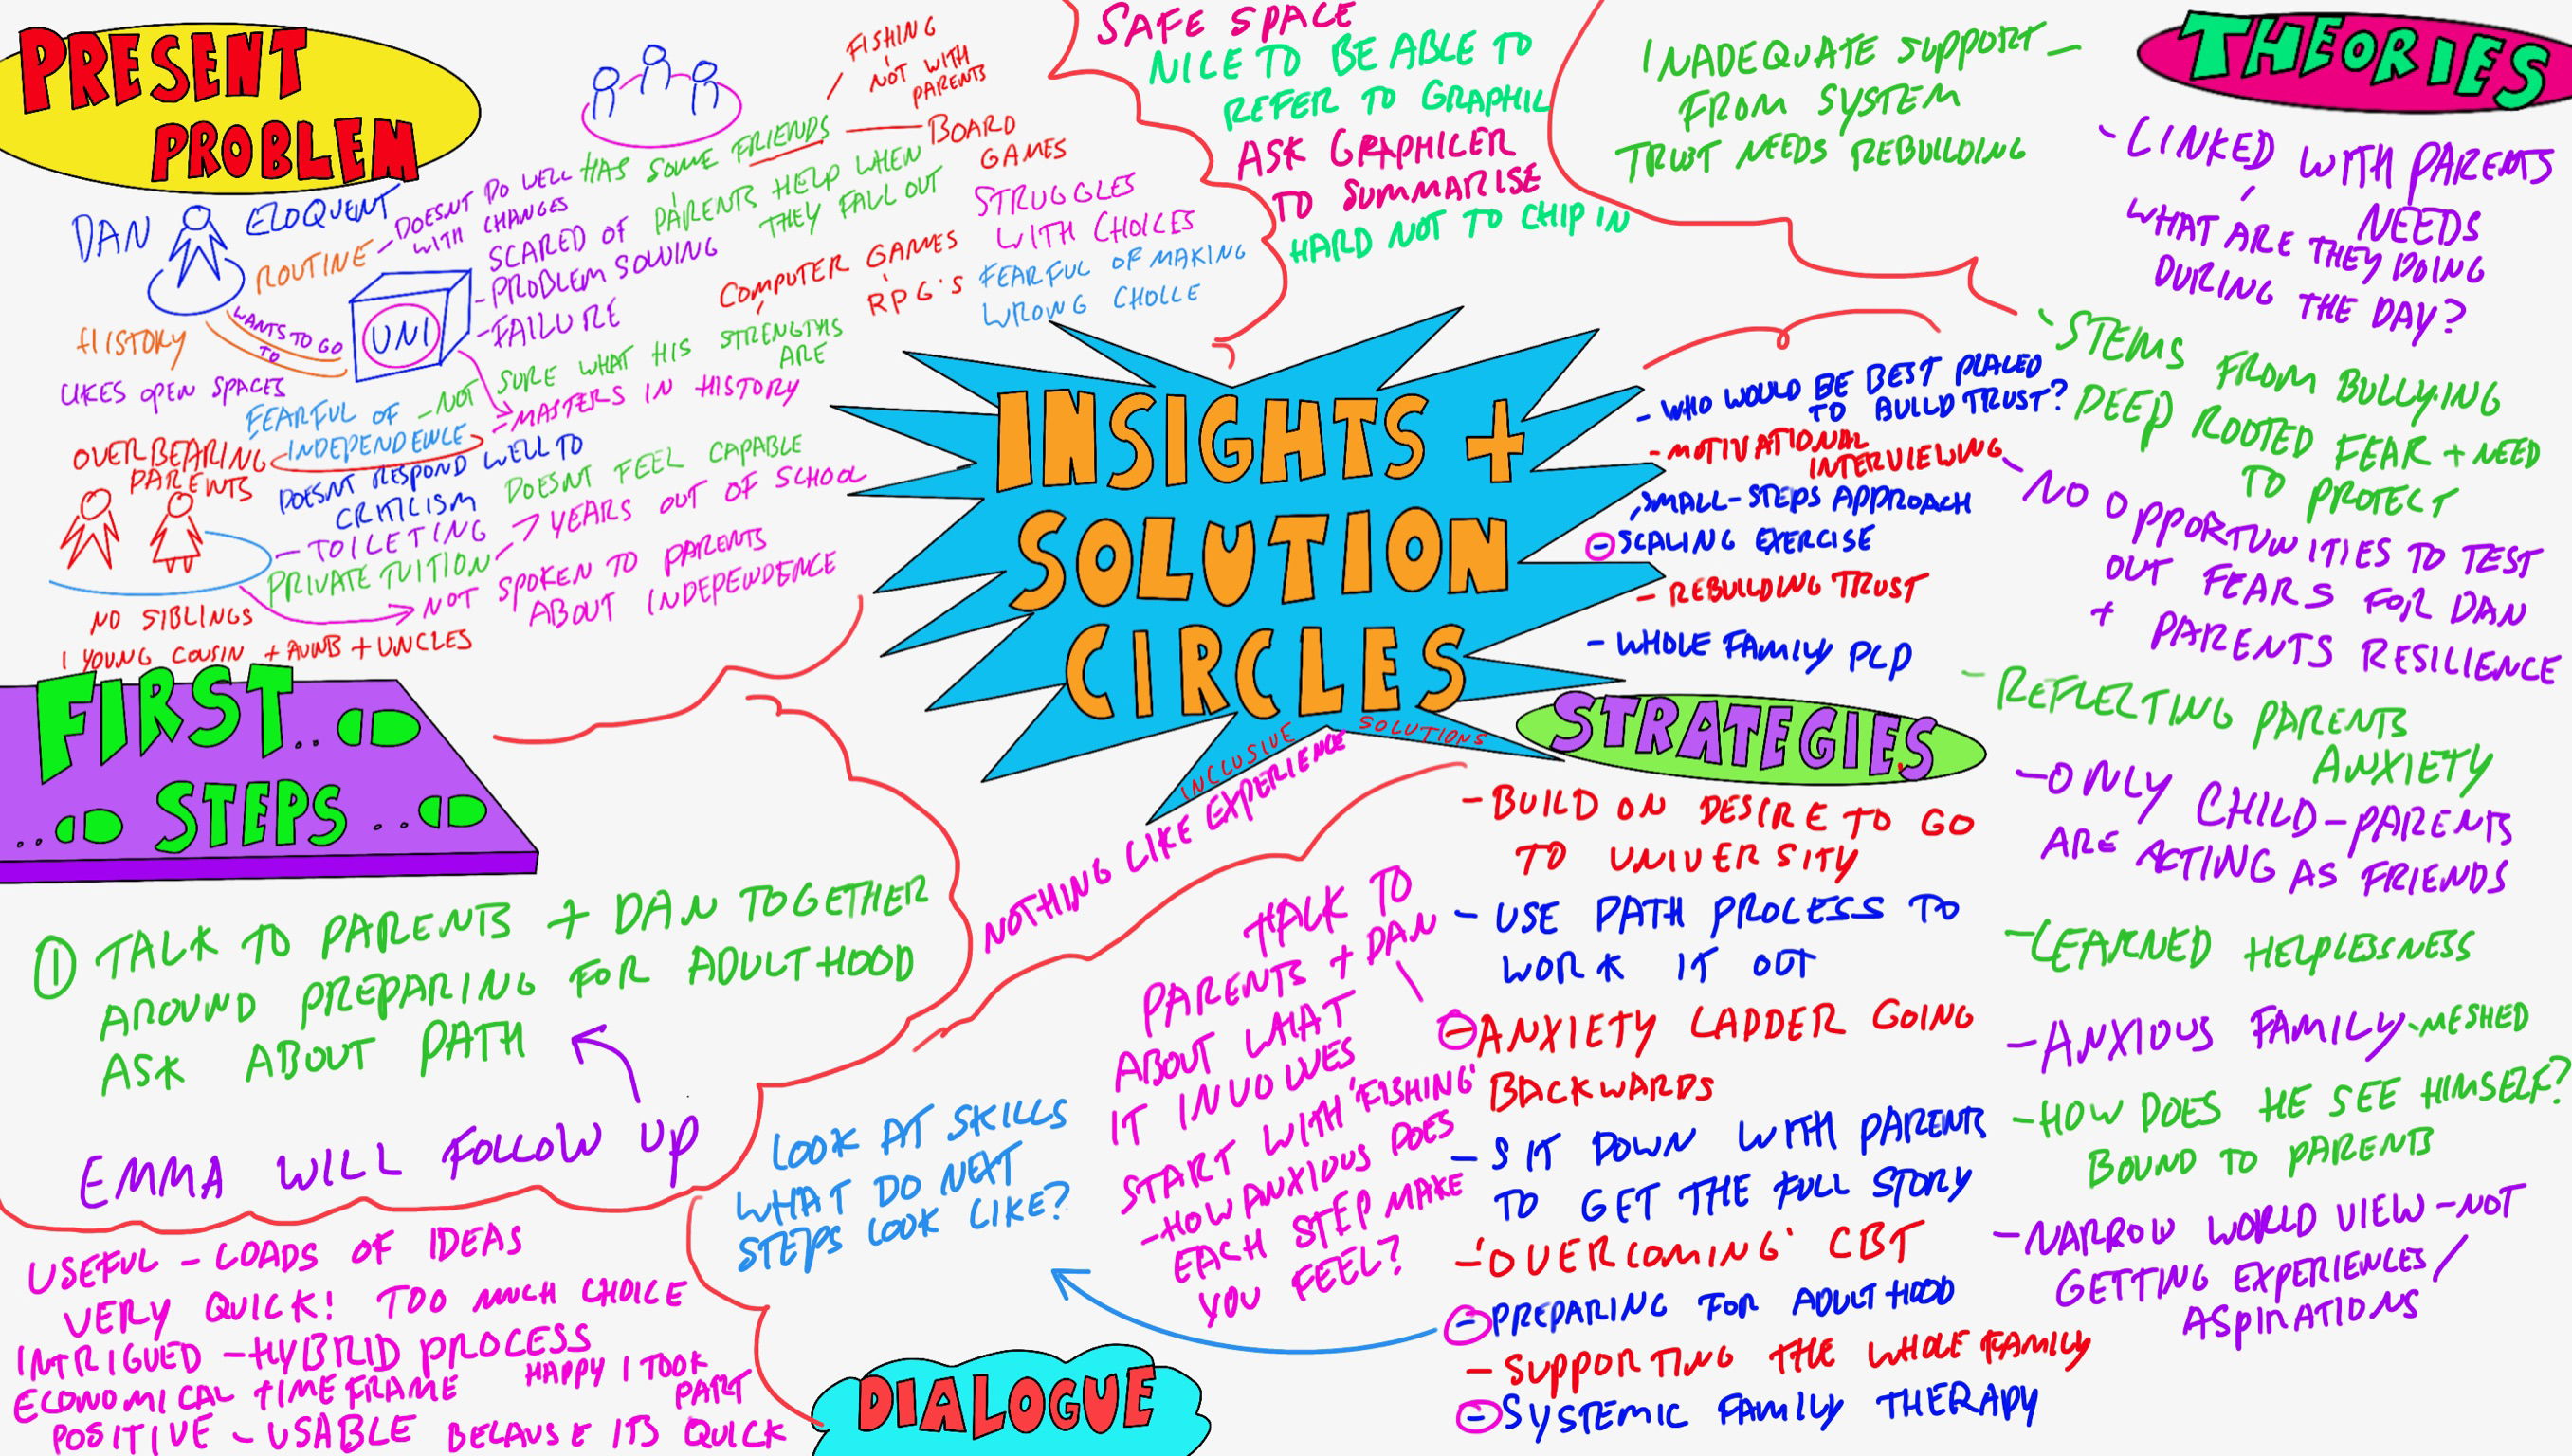 PRESENT
PROBLEM
DAN
ELOQUENT
ROUTINE - DOESNT DO WELL
WITH CHANGES
HISTORY
LIKES OPEN SPACES
WANTS TO GO
TO
UNI
SCARED OF
- PROBLEM SOLVING
- FAILURE
MASTERS IN HISTORY
HAS SOME FRIENDS
PARENTS HELP WHEN
THEY FALL OUT
FISHING
NOT WITH
PARENTS
BOARD
GAMES
COMPUTER GAMES
RPG'S
STRUGGLES
WITH CHOICES
FEARFUL OF MAKING
WRONG CHOICE
- NOT SURE WHAT HIS STRENGTHS
ARE
FEARFUL OF
INDEPENDENCE
OVERBEARING
PARENTS
DOESNT RESPOND WELL TO
CRITICISM
DOESNT FEEL CAPABLE
- TOILETING
PRIVATE TUITION - 7 YEARS OUT OF SCHOOL
NOT SPOKEN TO PARENTS
ABOUT INDEPENDENCE
NO SIBLINGS
1 YOUNG COUSIN + AUNTS + UNCLES
SAFE SPACE
NICE TO BE ABLE TO
REFER TO GRAPHIC
ASK GRAPHICER
TO SUMMARISE
HARD NOT TO CHIP IN
INSIGHTS +
SOLUTION
CIRCLES
INCLUSIVE SOLUTIONS
NOTHING LIKE EXPERIENCE
THEORIES
INADEQUATE SUPPORT -
FROM SYSTEM
TRUST NEEDS REBUILDING
- LINKED WITH PARENTS
NEEDS
WHAT ARE THEY DOING
DURING THE DAY?
- STEMS FROM BULLYING
DEEP ROOTED FEAR + NEED
TO PROTECT
- NO OPPORTUNITIES TO TEST
OUT FEARS FOR DAN
+ PARENTS RESILIENCE
- REFLECTING PARENTS
ANXIETY
- ONLY CHILD - PARENTS
ARE ACTING AS FRIENDS
- LEARNED HELPLESSNESS
- ANXIOUS FAMILY - MESHED
- HOW DOES HE SEE HIMSELF?
BOUND TO PARENTS
- NARROW WORLD VIEW - NOT
GETTING EXPERIENCES /
ASPIRATIONS
- WHO WOULD BE BEST PLACED
TO BUILD TRUST?
- MOTIVATIONAL
INTERVIEWING
SMALL-STEPS APPROACH
- SCALING EXERCISE
- REBUILDING TRUST
- WHOLE FAMILY PCP
STRATEGIES
- BUILD ON DESIRE TO GO
TO UNIVERSITY
- USE PATH PROCESS TO
WORK IT OUT
- ANXIETY LADDER GOING
BACKWARDS
- SIT DOWN WITH PARENTS
TO GET THE FULL STORY
- 'OVERCOMING' CBT
- PREPARING FOR ADULTHOOD
- SUPPORTING THE WHOLE FAMILY
- SYSTEMIC FAMILY THERAPY
TALK TO
PARENTS + DAN
ABOUT WHAT
IT INVOLVES
START WITH 'FISHING'
- HOW ANXIOUS DOES
EACH STEP MAKE
YOU FEEL?
LOOK AT SKILLS
WHAT DO NEXT
STEPS LOOK LIKE?
DIALOGUE
FIRST..
.. STEPS ..
1 TALK TO PARENTS + DAN TOGETHER
AROUND PREPARING FOR ADULTHOOD
ASK ABOUT PATH
EMMA WILL FOLLOW UP
USEFUL - LOADS OF IDEAS
VERY QUICK! TOO MUCH CHOICE
INTRIGUED - HYBRID PROCESS
ECONOMICAL TIME FRAME
HAPPY I TOOK
PART
POSITIVE - USABLE BECAUSE ITS QUICK